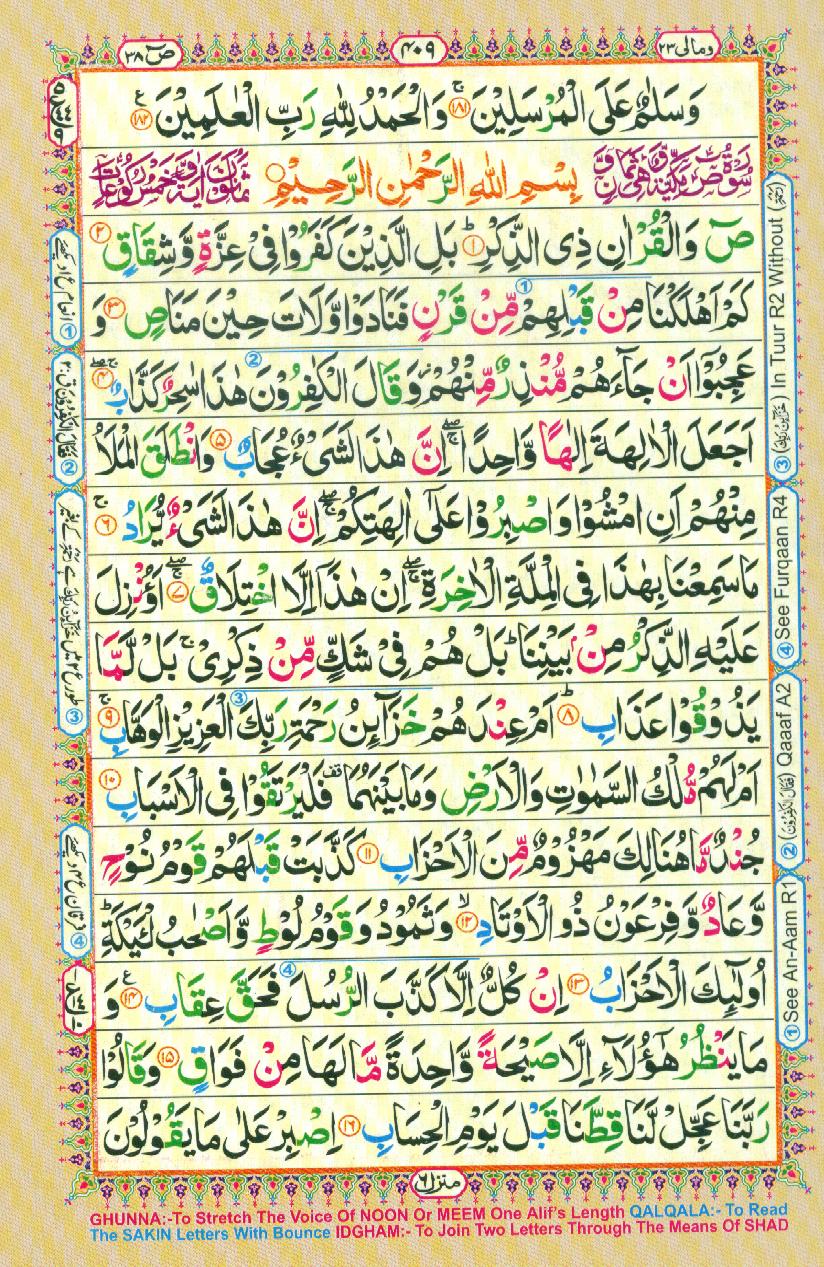 ومالی ٢٣
٤٠٩
صٓ ٣٨
وَسَلٰمٌ عَلَى الْمُرْسَلِيْنَ ۚ﴿١٨١﴾ وَالْحَمْدُ لِلّٰهِ رَبِّ الْعٰلَمِيْنَ ﴿١٨٢﴾ ع
سُوْرَةُ صٓ مَكِّيَّةٌ وَّهِىَ ثَمَانٌ وَّ بِسْمِ اللّٰهِ الرَّحْمٰنِ الرَّحِيْمِ ثَمَانُوْنَ اٰيَةً وَّخَمْسُ رُكُوْعَاتٍ
صٓ وَالْقُرْاٰنِ ذِى الذِّكْرِ ؕ﴿١﴾ بَلِ الَّذِيْنَ كَفَرُوْا فِىْ عِزَّةٍ وَّشِقَاقٍ ﴿٢﴾
كَمْ اَهْلَكْنَا مِنْ قَبْلِهِمْ ① مِّنْ قَرْنٍ فَنَادَوْا وَّلَاتَ حِيْنَ مَنَاصٍ ﴿٣﴾ وَ
عَجِبُوْۤا اَنْ جَآءَهُمْ مُّنْذِرٌ مِّنْهُمْ وَقَالَ الْكٰفِرُوْنَ ② هٰذَا سٰحِرٌ كَذَّابٌ ﴿٤﴾
اَجَعَلَ الْاٰلِهَةَ اِلٰهًا وَّاحِدًا ۖۚ اِنَّ هٰذَا لَشَىْءٌ عُجَابٌ ﴿٥﴾ وَانْطَلَقَ الْمَلَاُ
مِنْهُمْ اَنِ امْشُوْا وَاصْبِرُوْا عَلٰٓى اٰلِهَتِكُمْ ۖۚ اِنَّ هٰذَا لَشَىْءٌ يُّرَادُ ۚ﴿٦﴾
مَا سَمِعْنَا بِهٰذَا فِى الْمِلَّةِ الْاٰخِرَةِ ۖۚ اِنْ هٰذَاۤ اِلَّا اخْتِلَاقٌ ۖۚ﴿٧﴾ اَؤُنْزِلَ
عَلَيْهِ الذِّكْرُ مِنْۢ بَيْنِنَا ؕ بَلْ هُمْ فِىْ شَكٍّ مِّنْ ذِكْرِىْ ۚ بَلْ لَّمَّا
يَذُوْقُوْا عَذَابِ ؕ﴿٨﴾ اَمْ عِنْدَهُمْ خَزَآئِنُ رَحْمَةِ رَبِّكَ ③ الْعَزِيْزِ الْوَهَّابِ ۚ﴿٩﴾
اَمْ لَهُمْ مُّلْكُ السَّمٰوٰتِ وَالْاَرْضِ وَمَا بَيْنَهُمَا قف فَلْيَرْتَقُوْا فِى الْاَسْبَابِ ﴿١٠﴾
جُنْدٌ مَّا هُنَالِكَ مَهْزُوْمٌ مِّنَ الْاَحْزَابِ ﴿١١﴾ كَذَّبَتْ قَبْلَهُمْ قَوْمُ نُوْحٍ
وَّعَادٌ وَّفِرْعَوْنُ ذُو الْاَوْتَادِ ۙ﴿١٢﴾ وَثَمُوْدُ وَقَوْمُ لُوْطٍ وَّاَصْحٰبُ لْئَيْكَةِ ؕ
اُولٰٓئِكَ الْاَحْزَابُ ﴿١٣﴾ اِنْ كُلٌّ اِلَّا كَذَّبَ الرُّسُلَ ④ فَحَقَّ عِقَابِ ﴿١٤﴾ ع وَ
مَا يَنْظُرُ هٰٓؤُلَآءِ اِلَّا صَيْحَةً وَّاحِدَةً مَّا لَهَا مِنْ فَوَاقٍ ﴿١٥﴾ وَقَالُوْا
رَبَّنَا عَجِّلْ لَّنَا قِطَّنَا قَبْلَ يَوْمِ الْحِسَابِ ﴿١٦﴾ اِصْبِرْ عَلٰى مَا يَقُوْلُوْنَ
منزل ٦
① See An-Aam R1
② (وَقَالَ الْكٰفِرُوْنَ) Qaaaf A2
④ See Furqaan R4
③ In Tuur R2 Without
GHUNNA:-To Stretch The Voice Of NOON Or MEEM One Alif's Length QALQALA:- To Read
The SAKIN Letters With Bounce IDGHAM:- To Join Two Letters Through The Means Of SHAD